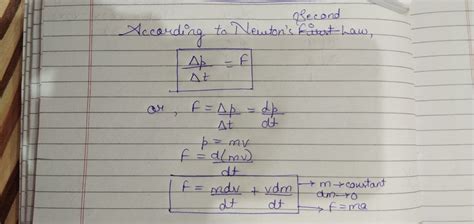 Second
According to Newton's First Law,
Δp/Δt = F
or, F = Δp/Δt = dp/dt
p = mv
F = d(mv)/dt
F = mdv/dt + vdm/dt → m → constant
dm → 0
→ F = ma